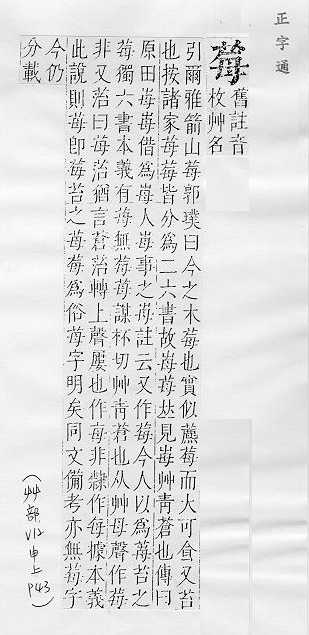 正字通
舊註音
枚艸名
引爾雅葥山莓郭璞曰今之木莓也實似藨莓而大可食又苔
也按諸家苺莓皆分爲二六書故苺莓𠀤見苺艸靑蒼也傳曰
原田每每借爲每人每事之每註云又作莓今人以爲莓苔之
莓獨六書本義有苺無莓苺謀杯切艸靑蒼也从艸母聲作莓
非又治曰苺治猶言蒼治轉上聲屢也作每非隸作每據本義
此說則苺卽莓苔之苺莓爲俗苺字明矣同文備考亦無莓字
今仍
分載
(艸部 V12 申上 P43)